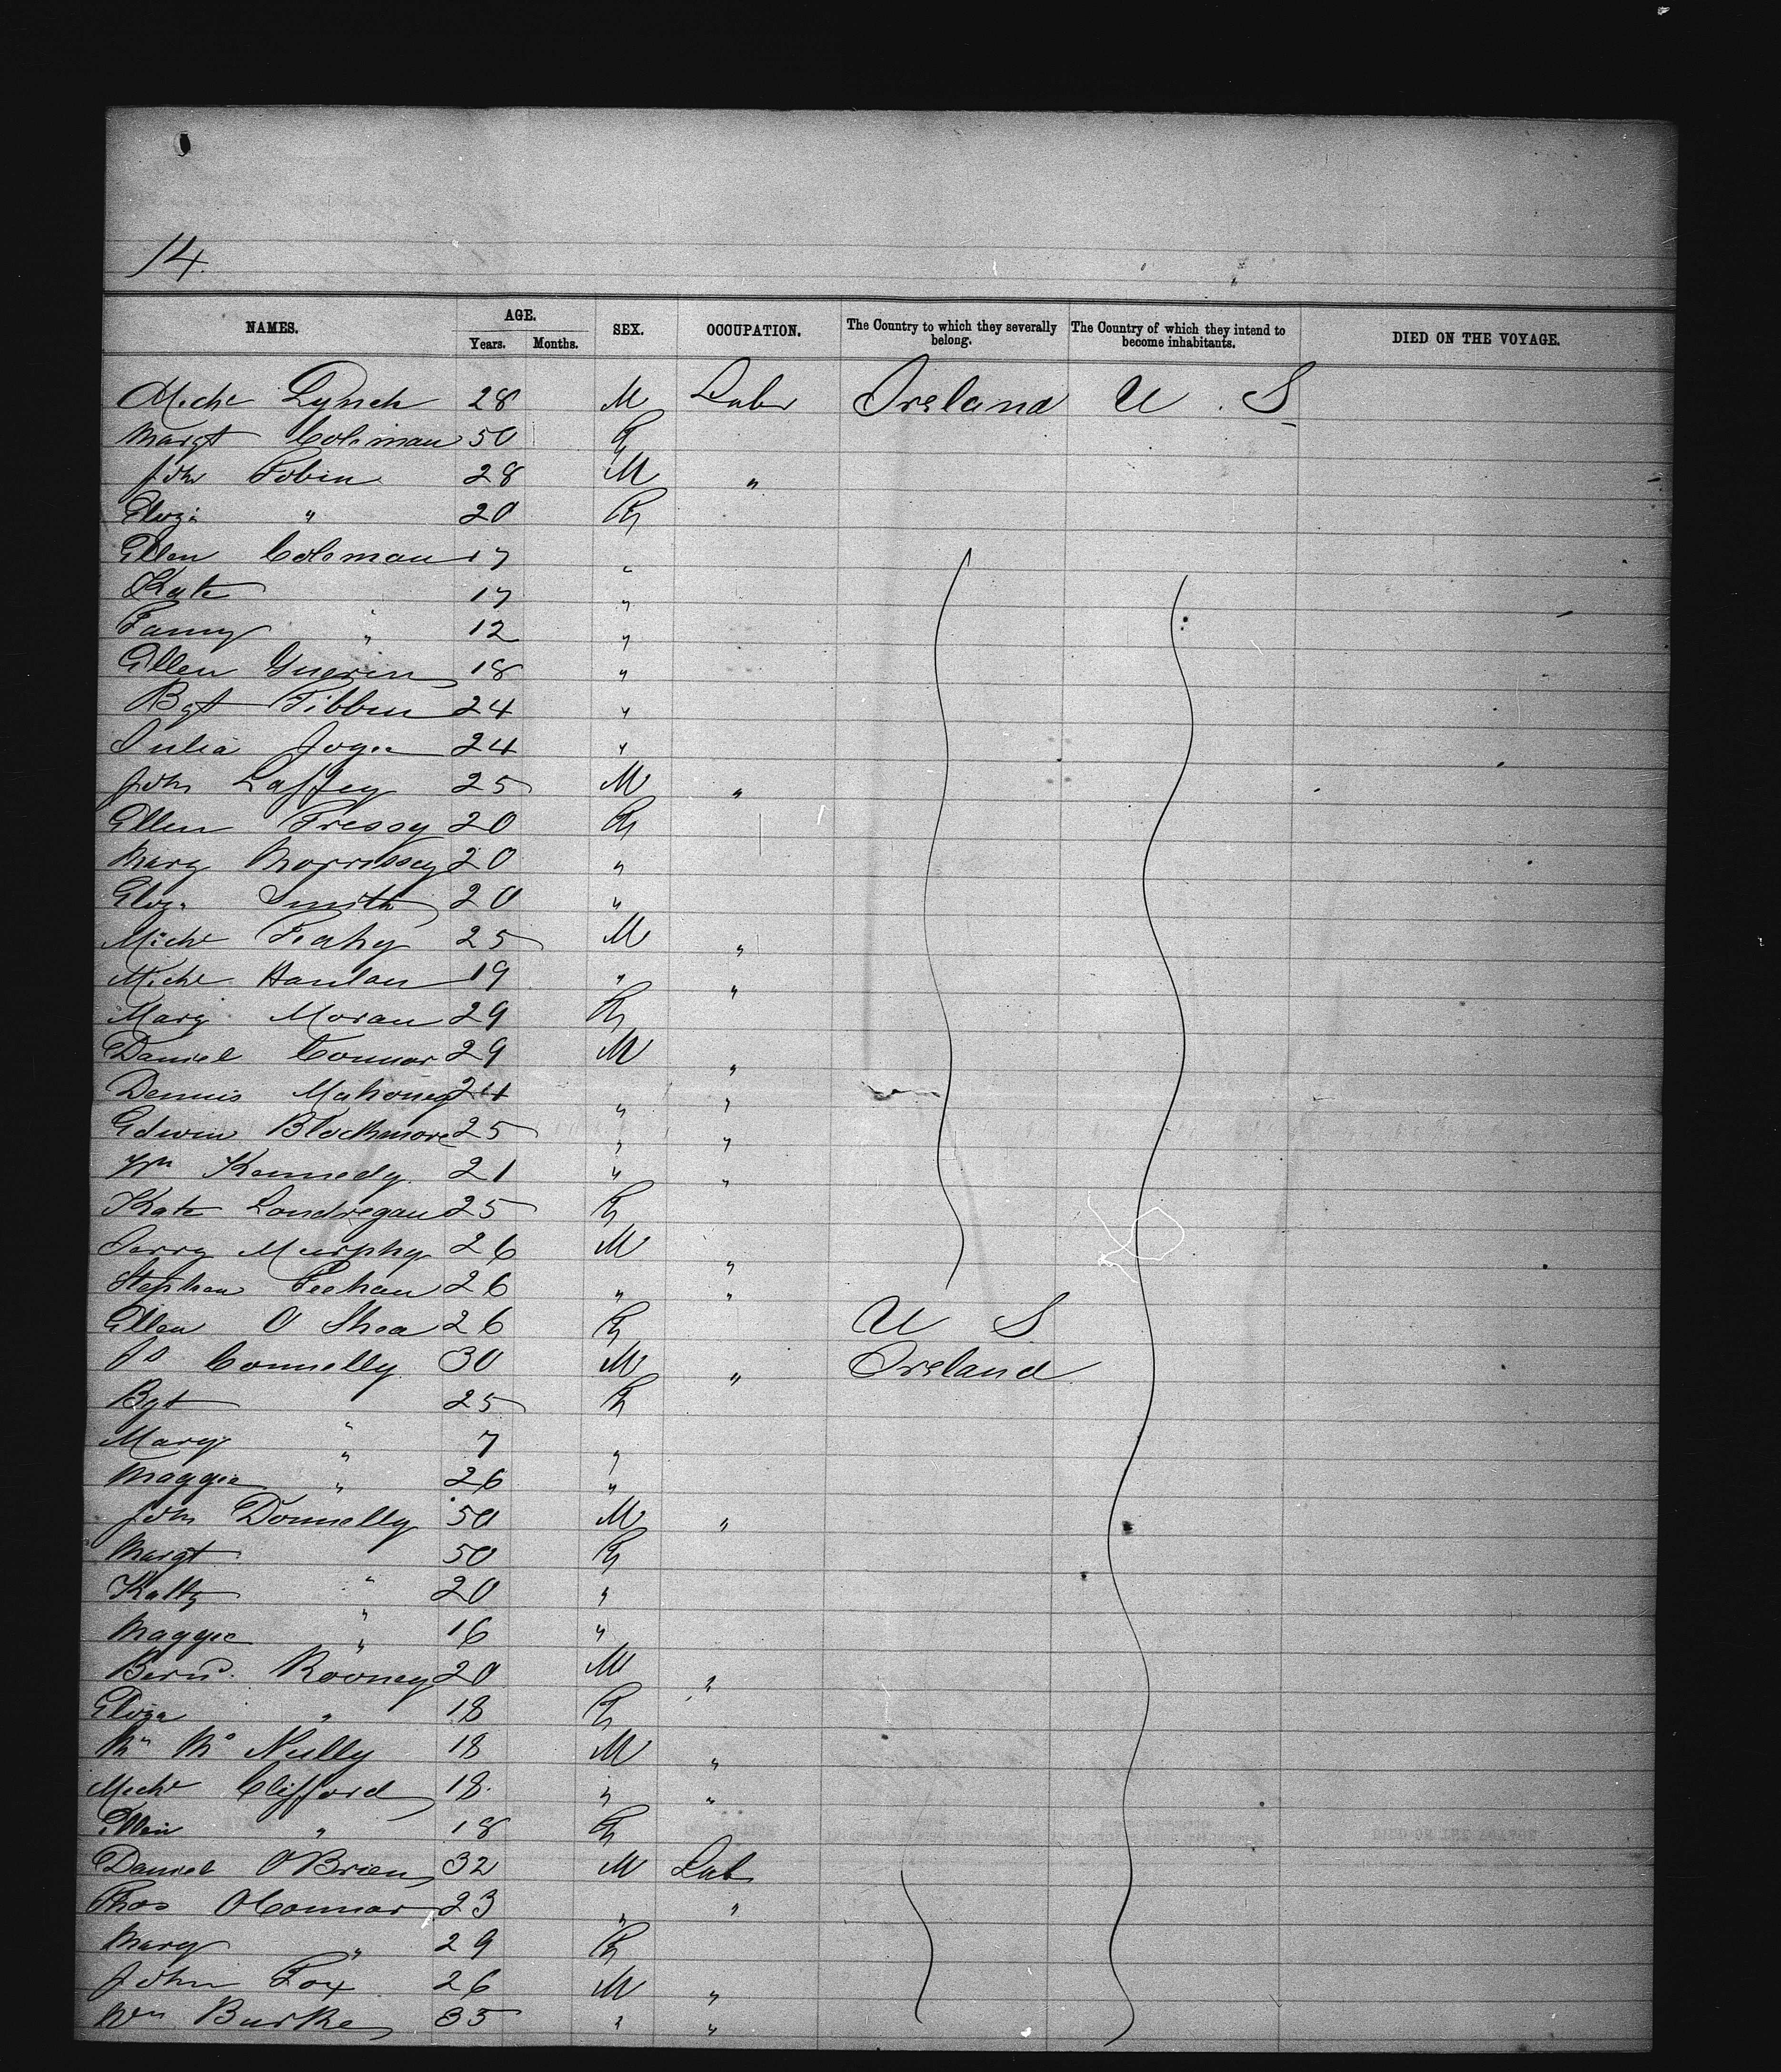 14.
NAMES. AGE. SEX. OCCUPATION. The Country to which they severally belong. The Country of which they intend to become inhabitants. DIED ON THE VOYAGE.
Years. Months.
Michl Lynch 28 M Labr Ireland U. S
Margt Coleman 50 F
John Tobin 28 M "
Eliza " 20 F
Ellen Coleman 17 "
Kate 17 "
Fanny " 12 "
Ellen Guerin 18 "
Bgt Tibben 24 "
Julia Joyce 24 "
John Laffey 25 M "
Ellen Tressy 20 F
Mary Morrissey 20 "
Eliza Smith 20 "
Michl Feahy 25 M "
Michl Hanlan 19 " "
Mary Moran 29 F
Daniel Connor 29 M "
Dennis Mahoney 24 " "
Edwin Blackmore 25 " "
Wm Kennedy 21 " "
Kate Londregan 25 F
Jerry Murphy 26 M "
Stephen Feehan 26 " "
Ellen O Shea 26 F U S
Connelly 30 M " Ireland
Bgt " 25 F
Mary " 7 "
Maggie " 26 "
John Donnelly 50 M "
Margt " 50 F
Katty " 20 "
Maggie " 16 "
Bernd. Rooney 20 M "
Eliza " 18 F
Mc Nully 18 M "
Michl Clifford 18. " "
Ellen " 18 F
Daniel OBrien 32 M Lab
Thos OConnor 23 " "
Mary " 29 F
John Fox 26 M "
Wm Burke 35 " "